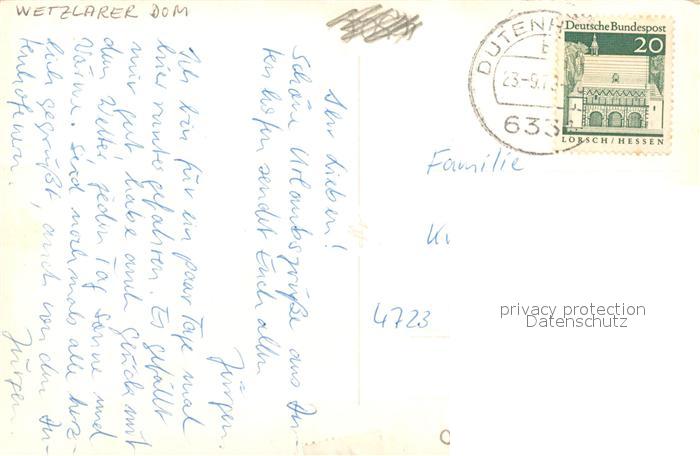 WETZLARER DOM
Ihr Lieben!
Schöne Urlaubsgrüße aus Du-
tenhofen sendet Euch allen
Jürgen.
Ich bin für ein paar Tage mal
hier runter gefahren. Es gefällt
mir gut, habe auch Glück mit
dem Wetter, jeden Tag Sonne und
Wärme. Seid nochmals alle herz-
lich gegrüßt, auch von den Du-
tenhofenern.
Jürgen.
DUTENH
23-9.
633
Deutsche Bundespost
20
LORSCH/HESSEN
Familie
4723
privacy protection
Datenschutz